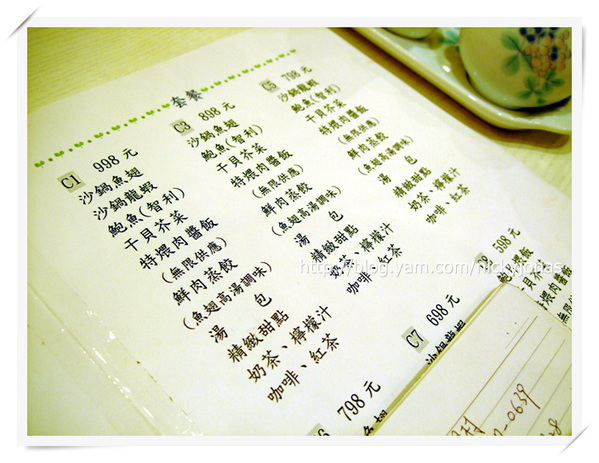 套餐
C1 998 元
沙鍋魚翅
沙鍋龍蝦
鮑魚(智利)
干貝芥菜
特煨肉醬飯
(無限供應)
鮮肉蒸餃
(魚翅高湯調味)
湯 包
精緻甜點
奶茶、檸檬汁
咖啡、紅茶
C3 898 元
沙鍋魚翅
鮑魚(智利)
干貝芥菜
特煨肉醬飯
(無限供應)
鮮肉蒸餃
(魚翅高湯調味)
湯 包
精緻甜點
奶茶、檸檬汁
咖啡、紅茶
C5 798 元
沙鍋龍蝦
鮑魚(智利)
干貝芥菜
特煨肉醬飯
(無限供應)
鮮肉蒸餃
(魚翅高湯調味)
湯 包
精緻甜點
奶茶、檸檬汁
咖啡、紅茶
6 798 元
C7 698 元
沙鍋龍蝦
598 元
-0639
http://blog.yam.com/nickyjonas